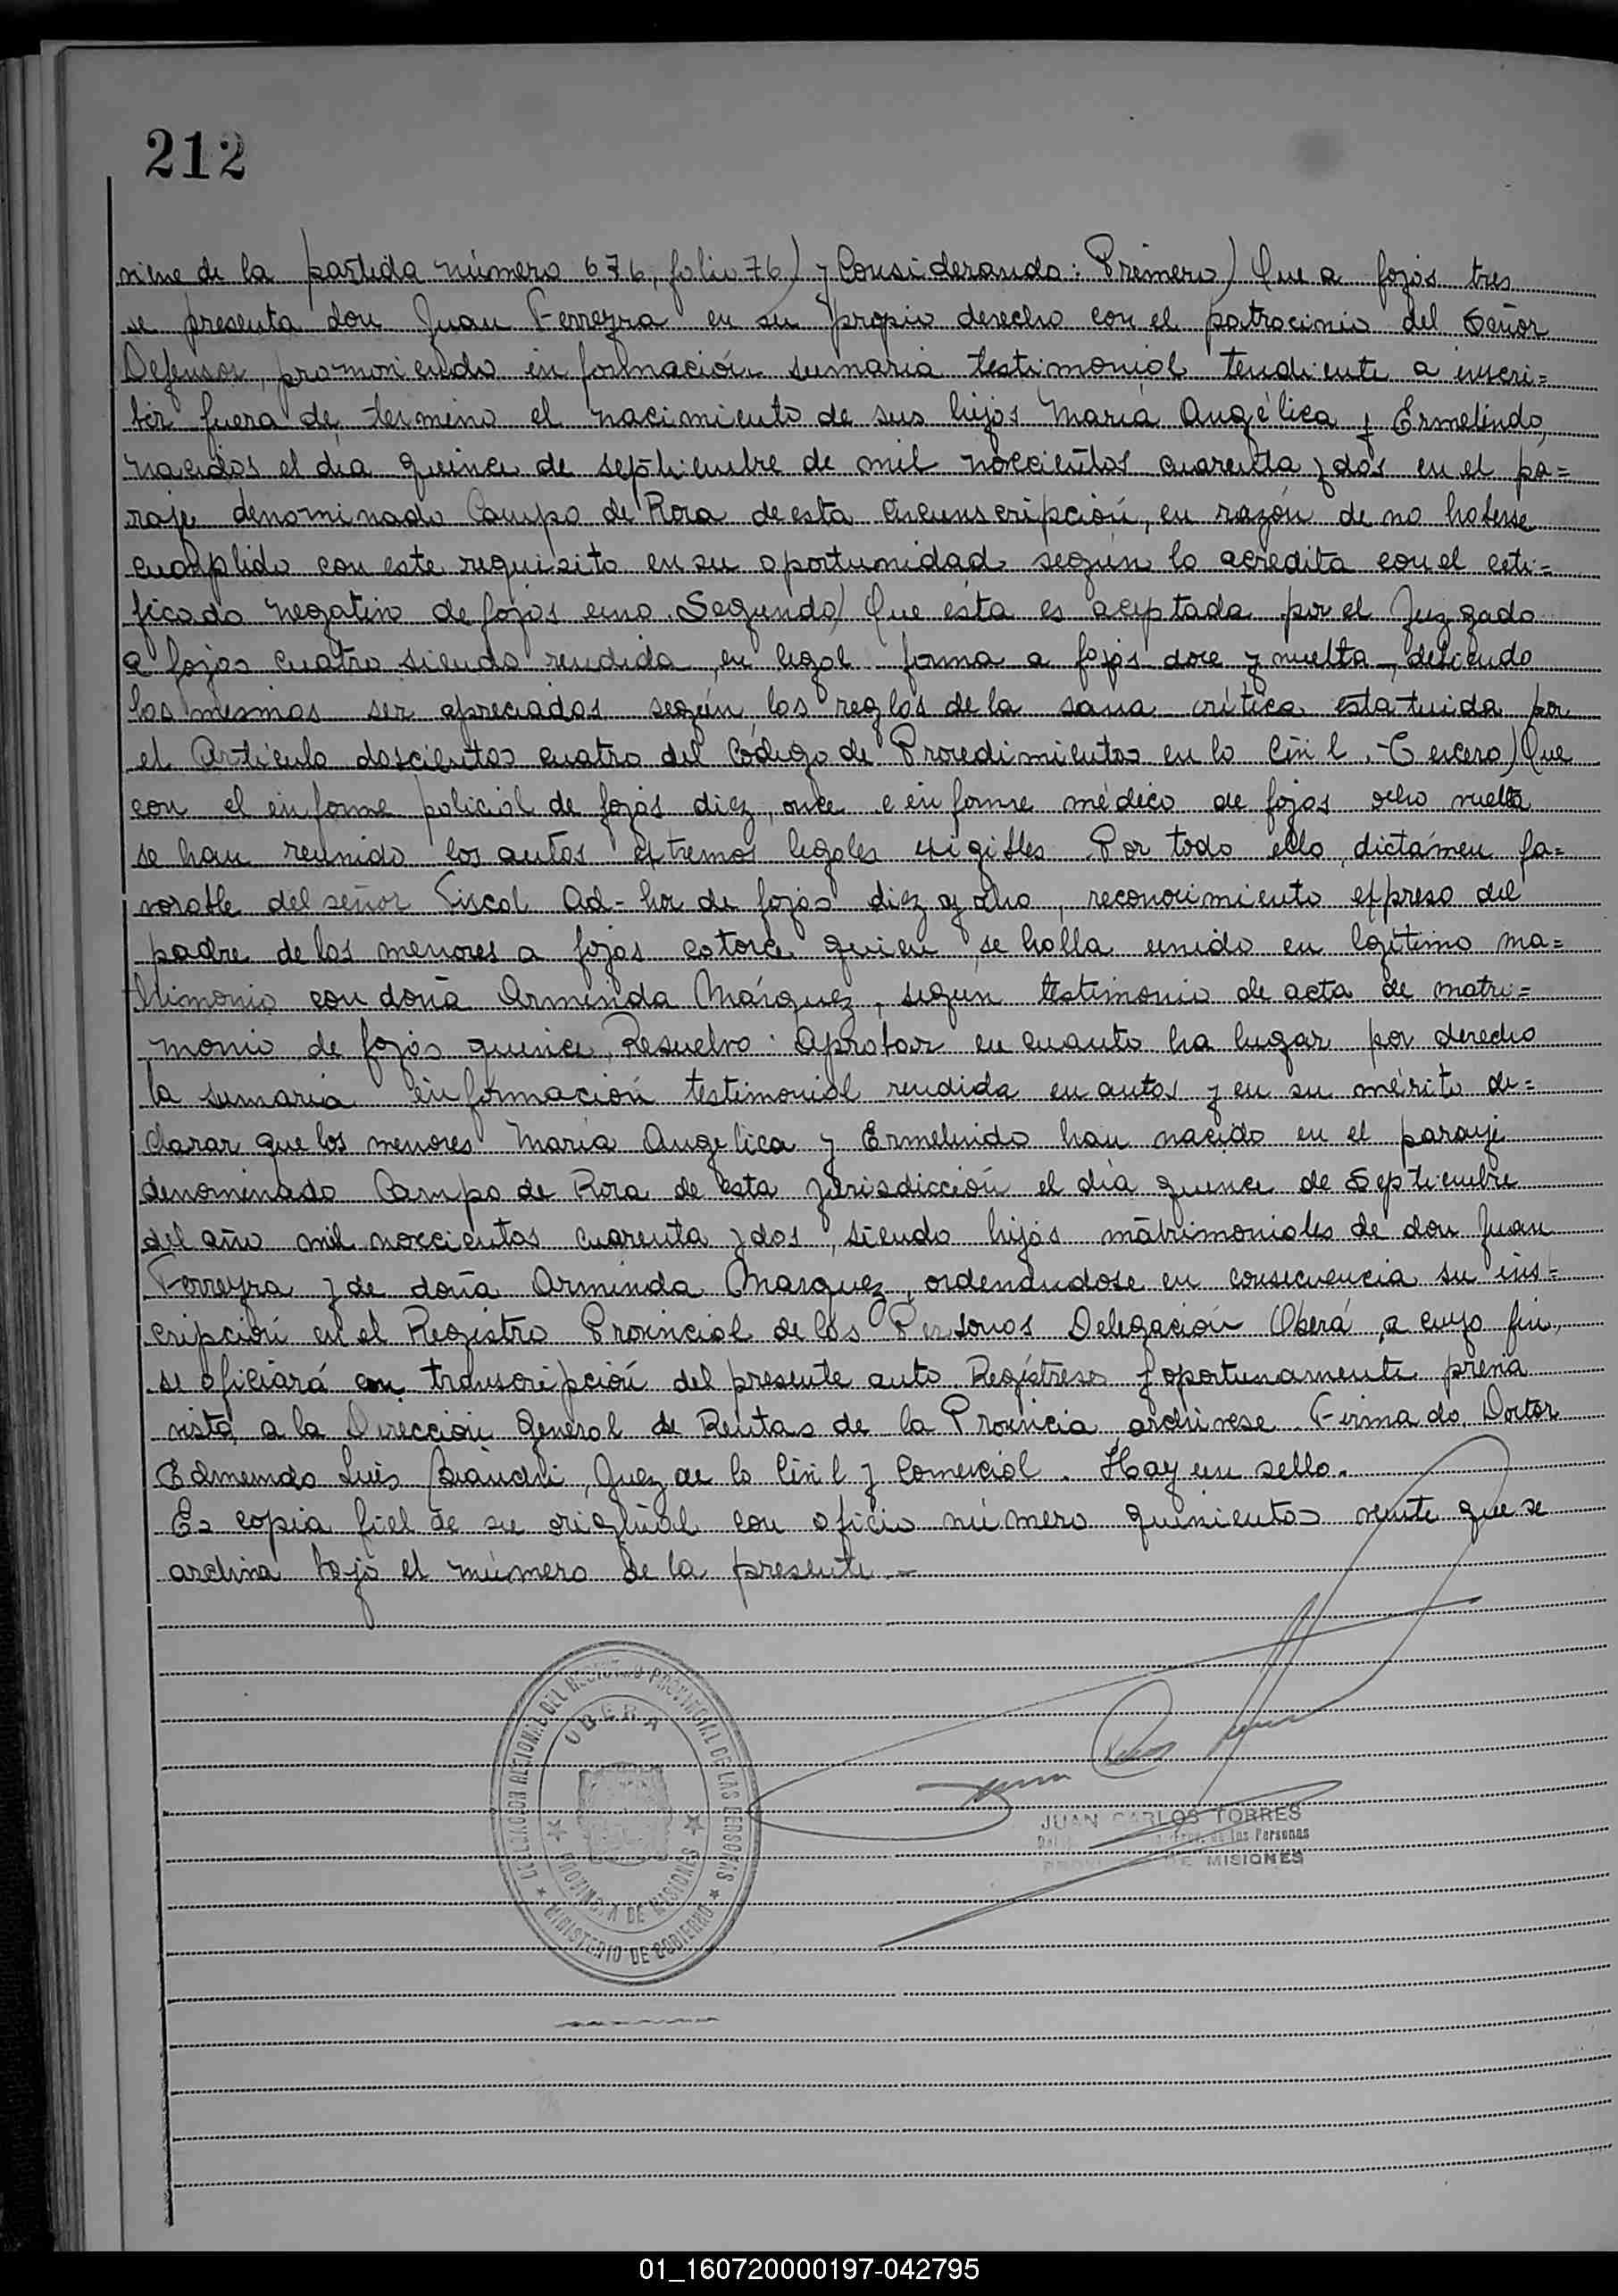 212
viene de la partida número 676, folio 76) y Considerando: Primero) Que a fojas tres
se presenta don Juan Ferreyra en su propio derecho con el patrocinio del Señor
Defensor, promoviendo información sumaria testimonial tendiente a inscri=
bir fuera de termino el nacimiento de sus hijos María Angélica y Ermelindo,
nacidos el dia quince de septiembre de mil novecientos cuarenta y dos en el pa=
raje denominado Campo de Rora de esta circunscripción, en razón de no haberse
cumplido con este requisito en su oportunidad según lo acredita con el certi=
ficado negativo de fojas uno. Segundo) Que ésta es aceptada por el Juzgado
a fojas cuatro siendo rendida en legal forma a fojas doce y vuelta, debiendo
los mismos ser apreciados según las reglas de la sana crítica estatuida por
el Artículo doscientos cuatro del Código de Procedimientos en lo Civil. - Tercero) Que
con el informe policial de fojas diez, once e informe médico de fojas ocho vuelta
se han reunido los autos extremos legales exigibles. Por todo ello, dictámen fa=
vorable del señor Fiscal Ad-hoc de fojas diez y ocho, reconocimiento expreso del
padre de los menores a fojas catorce quien se halla unido en legítimo ma=
trimonio con doña Arminda Márquez, según testimonio de acta de matri=
monio de fojas quince, Resuelvo: Aprobar en cuanto ha lugar por derecho
la sumaria información testimonial rendida en autos y en su mérito de=
clarar que los menores María Angelica y Ermelindo han nacido en el paraje
denominado Campo de Rora de esta jurisdicción el día quince de Septiembre
del año mil novecientos cuarenta y dos, siendo hijos matrimoniales de don Juan
Ferreyra y de doña Arminda Marquez, ordenándose en consecuencia su ins=
cripción en el Registro Provincial de las Personas Delegación Oberá, a cuyo fin,
se oficiará con transcripción del presente auto. Regístrese y oportunamente previa
vista a la Dirección General de Rentas de la Provincia, archivese. Firmado. Doctor
Edmundo Luis Bianchi, Juez de lo Civil y Comercial. Hay un sello.
Es copia fiel de su original con oficio número quinientos veinte que se
archiva bajo el número de la presente.-
DELEGACION REGIONAL DEL REGISTRO PROVINCIAL DE LAS PERSONAS
OBERA
PROVINCIA DE MISIONES
MINISTERIO DE GOBIERNO
JUAN CARLOS TORRES
de las Personas
PROVINCIA DE MISIONES
01_160720000197-042795